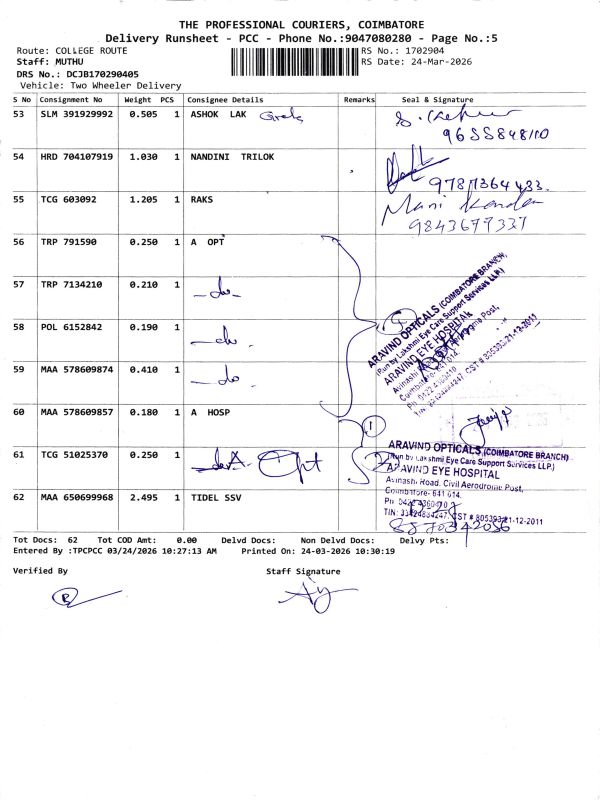 THE PROFESSIONAL COURIERS, COIMBATORE
Delivery Runsheet - PCC - Phone No.:9047080280 - Page No.:5
Route: COLLEGE ROUTE RS No.: 1702904
Staff: MUTHU RS Date: 24-Mar-2026
DRS No.: DCJB170290405
Vehicle: Two Wheeler Delivery
S No Consignment No Weight PCS Consignee Details Remarks Seal & Signature
53 SLM 391929992 0.505 1 ASHOK LAK
54 HRD 704107919 1.030 1 NANDINI TRILOK
9787364433
55 TCG 603092 1.205 1 RAKS Mani
9843677337
56 TRP 791590 0.250 1 A OPT
57 TRP 7134210 0.210 1 -do-
58 POL 6152842 0.190 1 -do-
59 MAA 578609874 0.410 1 -do-
60 MAA 578609857 0.180 1 A HOSP 1
61 TCG 51025370 0.250 1 A. Opt
62 MAA 650699968 2.495 1 TIDEL SSV
ARAVIND OPTICALS (COIMBATORE BRANCH)
(Run by Lakshmi Eye Care Support Services LLP.)
ARAVIND EYE HOSPITAL
ARAVIND OPTICALS (COIMBATORE BRANCH)
(Run by Lakshmi Eye Care Support Services LLP.)
ARAVIND EYE HOSPITAL
Avinashi Road, Civil Aerodrome Post,
Coimbatore- 641 014.
Tot Docs: 62 Tot COD Amt: 0.00 Delvd Docs: Non Delvd Docs: Delvy Pts:
Entered By :TPCPCC 03/24/2026 10:27:13 AM Printed On: 24-03-2026 10:30:19
Verified By Staff Signature